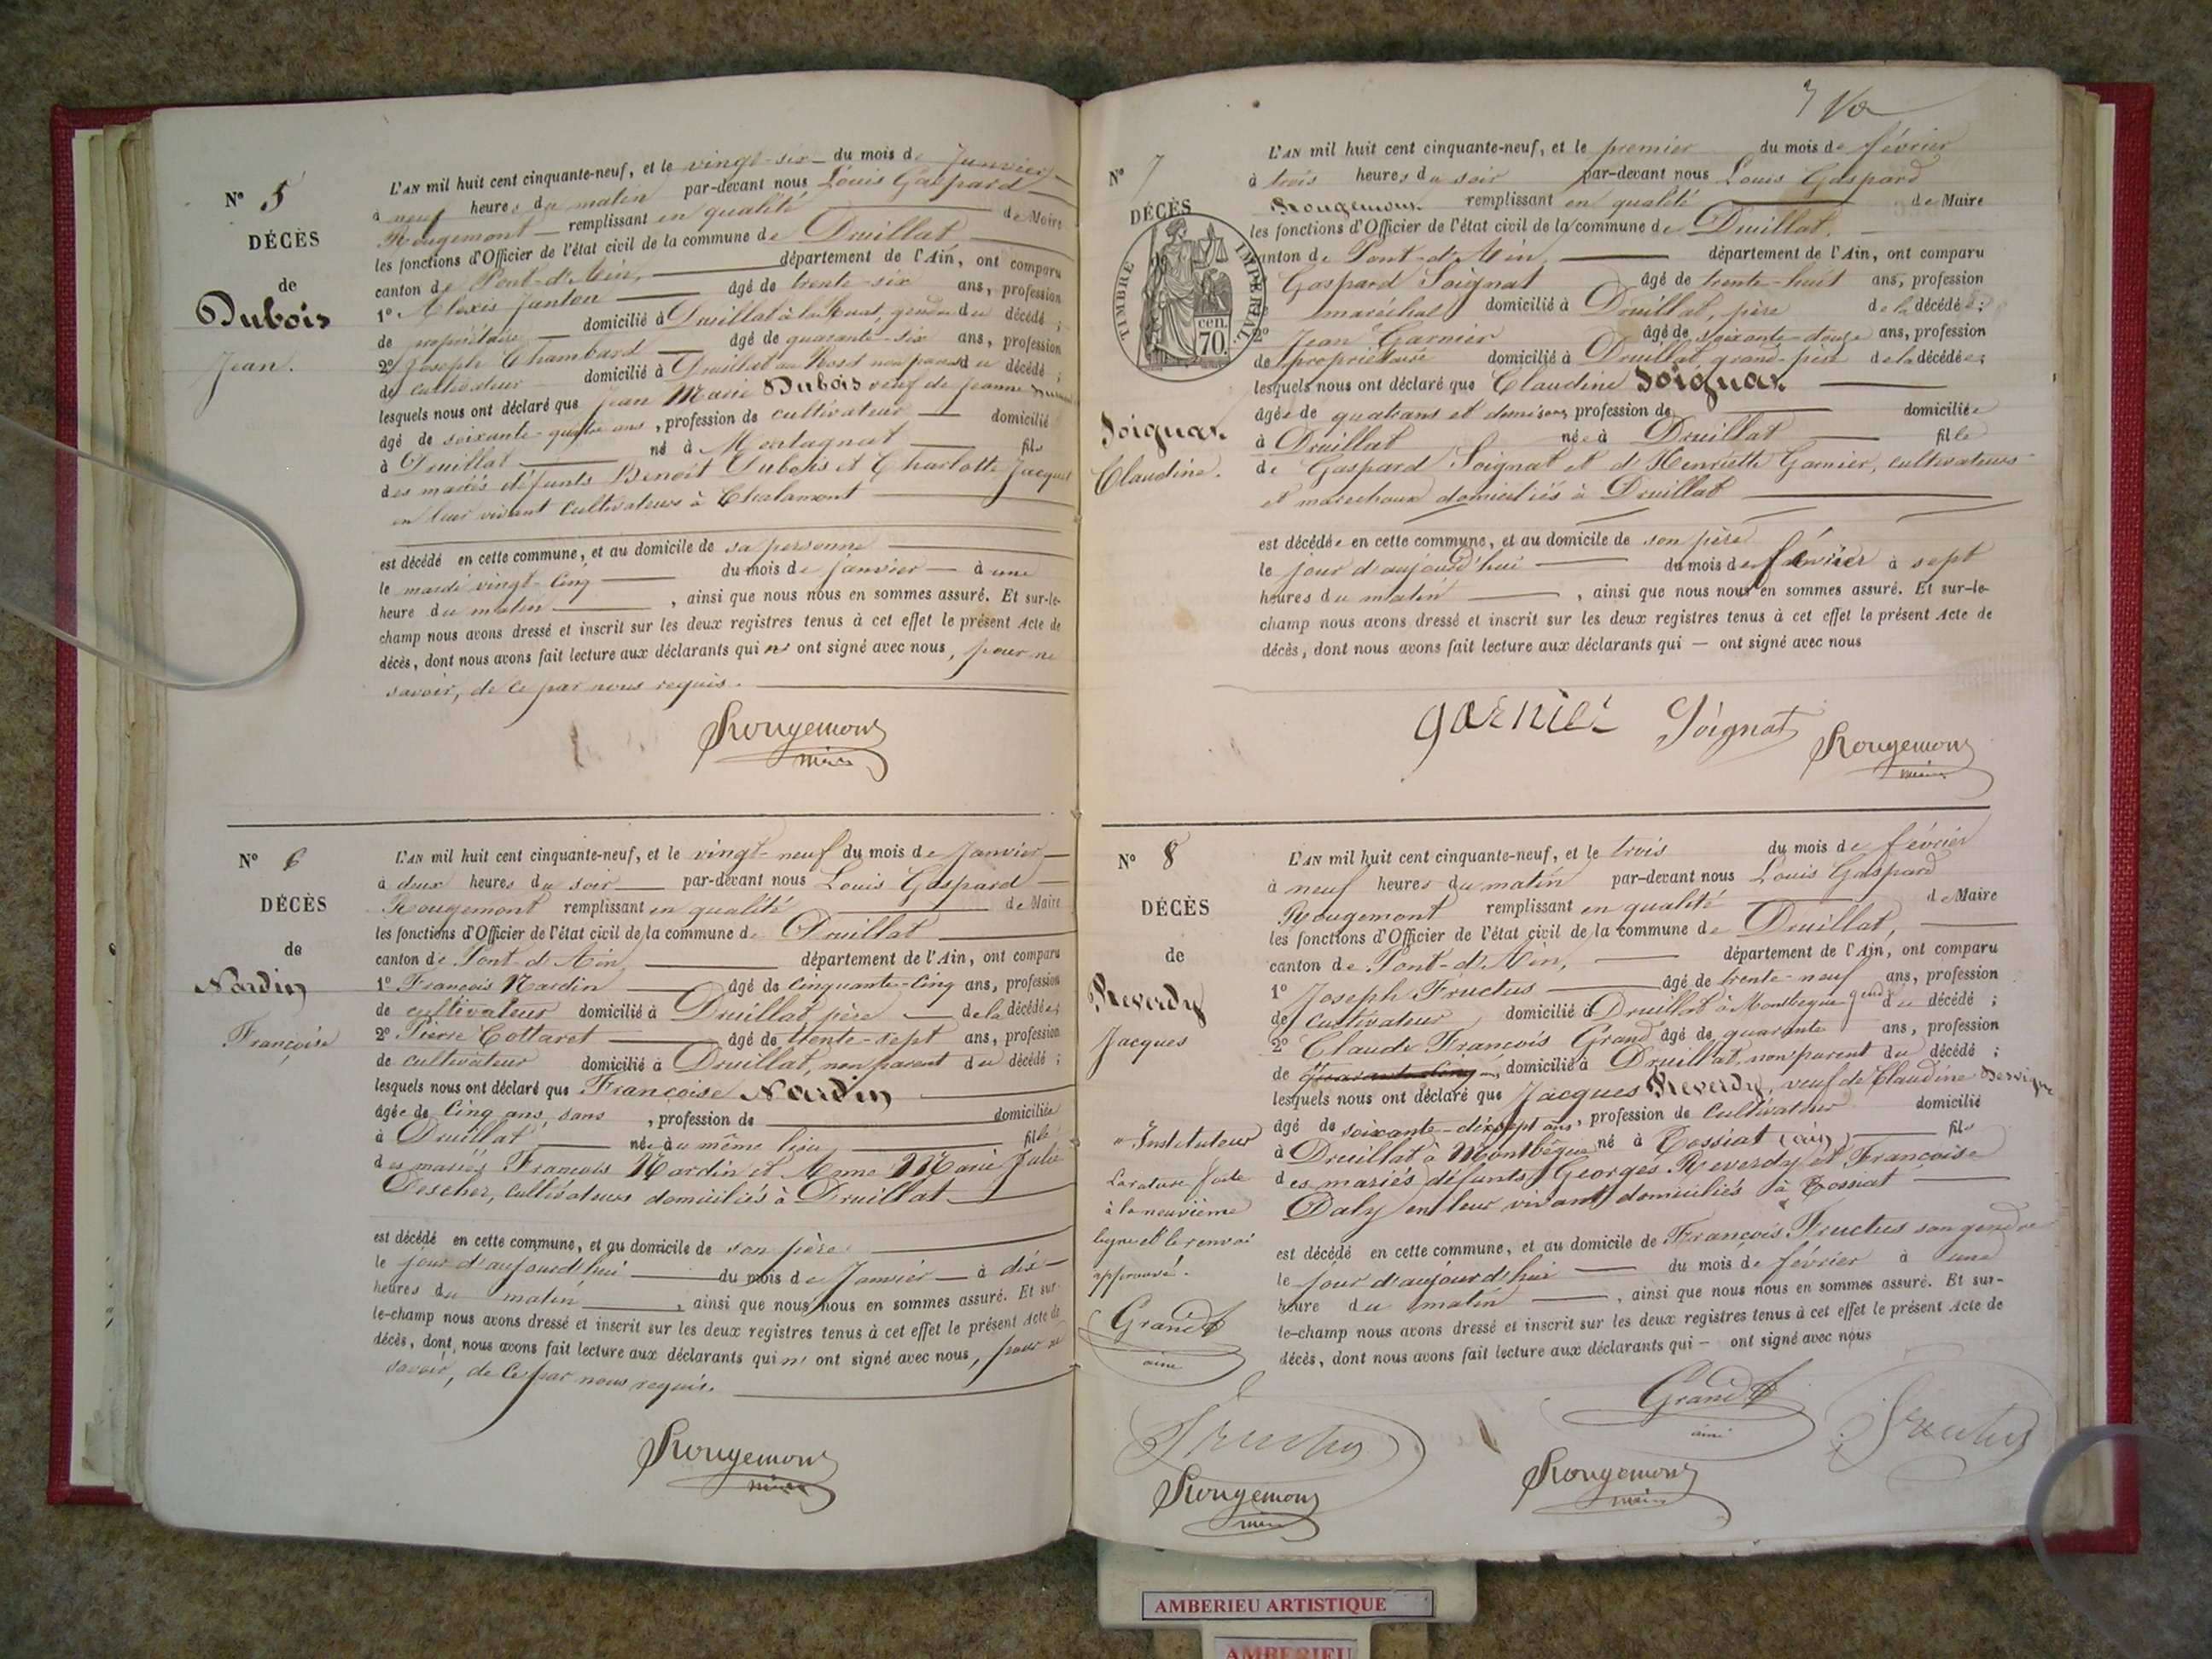 N° 5
DÉCÈS
de
Dubois
Jean.
L'AN mil huit cent cinquante-neuf, et le vingt-six du mois de Janvier
à neuf heures du matin par-devant nous Louis Gaspard
Rougemont remplissant en qualité de Maire
les fonctions d'Officier de l'état civil de la commune de Druillat
canton de Pont-d'Ain, département de l'Ain, ont comparu
1° Alexis Janton âgé de trente-six ans, profession
de propriétaire domicilié à Druillat gendre du décédé ;
2° Joseph Chambard âgé de quarante-six ans, profession
de cultivateur domicilié à Druillat non parent du décédé ;
lesquels nous ont déclaré que Jean Marie Dubois veuf de Jeanne
âgé de soixante-quatre ans, profession de cultivateur domicilié
à Druillat né à Montagnat fils
des mariés défunts Benoît Dubois et Charlotte Jacquet
en leur vivant cultivateurs à Chalamont
est décédé en cette commune, et au domicile de sa personne
le mardi vingt-cinq du mois de janvier à une
heure du matin, ainsi que nous nous en sommes assuré. Et sur-le-
champ nous avons dressé et inscrit sur les deux registres tenus à cet effet le présent Acte de
décès, dont nous avons fait lecture aux déclarants qui n' ont signé avec nous, pour ne
savoir, de ce par nous requis.
Rougemont
maire
N° 6
DÉCÈS
de
Nardin
Françoise
L'AN mil huit cent cinquante-neuf, et le vingt-neuf du mois de Janvier
à deux heures du soir par-devant nous Louis Gaspard
Rougemont remplissant en qualité de Maire
les fonctions d'Officier de l'état civil de la commune de Druillat
canton de Pont-d'Ain, département de l'Ain, ont comparu
1° François Nardin âgé de cinquante-cinq ans, profession
de cultivateur domicilié à Druillat père de la décédée ;
2° Pierre Cottaret âgé de trente-sept ans, profession
de cultivateur domicilié à Druillat, non parent du décédé ;
lesquels nous ont déclaré que Françoise Nardin
âgée de cinq ans, sans, profession de domiciliée
à Druillat née au même lieu fille
des mariés François Nardin et Anne Marie Julie
Descher, cultivateurs domiciliés à Druillat
est décédé en cette commune, et au domicile de son père
le jour d'aujourd'hui du mois de Janvier à dix
heures du matin, ainsi que nous nous en sommes assuré. Et sur-
le-champ nous avons dressé et inscrit sur les deux registres tenus à cet effet le présent Acte de
décès, dont nous avons fait lecture aux déclarants qui n' ont signé avec nous, pour ne
savoir, de ce par nous requis.
Rougemont
maire
N° 7
DÉCÈS
TIMBRE IMPERIAL
70 cen.
Soignat
Claudine.
L'AN mil huit cent cinquante-neuf, et le premier du mois de février
à trois heures du soir par-devant nous Louis Gaspard
Rougemont remplissant en qualité de Maire
les fonctions d'Officier de l'état civil de la commune de Druillat.
canton de Pont-d'Ain, département de l'Ain, ont comparu
Gaspard Soignat âgé de trente-huit ans, profession
maréchal domicilié à Druillat, père de la décédée ;
2° Jean Garnier âgé de soixante-douze ans, profession
de propriétaire domicilié à Druillat, grand-père de la décédée ;
lesquels nous ont déclaré que Claudine Soignat
âgée de quatre ans et demi, profession de domiciliée
à Druillat née à Druillat fille
de Gaspard Soignat et d'Henriette Garnier, cultivateurs
et maréchaux domiciliés à Druillat
est décédée en cette commune, et au domicile de son père
le jour d'aujourd'hui du mois de février à sept
heures du matin, ainsi que nous nous en sommes assuré. Et sur-le-
champ nous avons dressé et inscrit sur les deux registres tenus à cet effet le présent Acte de
décès, dont nous avons fait lecture aux déclarants qui — ont signé avec nous
garnier Soignat Rougemont
maire
N° 8
DÉCÈS
de
Reverdy
Jacques
L'AN mil huit cent cinquante-neuf, et le trois du mois de février
à neuf heures du matin par-devant nous Louis Gaspard
Rougemont remplissant en qualité de Maire
les fonctions d'Officier de l'état civil de la commune de Druillat,
canton de Pont-d'Ain, département de l'Ain, ont comparu
1° Joseph Fructus âgé de trente-neuf ans, profession
de cultivateur domicilié à Druillat à Montbègue gendre du décédé ;
2° Claude François Grand âgé de quarante ans, profession
de domicilié à Druillat, non parent du décédé ;
lesquels nous ont déclaré que Jacques Reverdy, veuf de Claudine Dervigne
âgé de soixante-dix-sept ans, profession de cultivateur domicilié
à Druillat à Montbègue né à Tossiat (Ain) fils
des mariés défunts Georges Reverdy et Françoise
Daly en leur vivant domiciliés à Tossiat
est décédé en cette commune, et au domicile de François Fructus son gendre
le jour d'aujourd'hui du mois de février à une
heure du matin, ainsi que nous nous en sommes assuré. Et sur-
le-champ nous avons dressé et inscrit sur les deux registres tenus à cet effet le présent Acte de
décès, dont nous avons fait lecture aux déclarants qui — ont signé avec nous
Instituteur
La rature faite
à la neuvième
ligne et le renvoi
approuvé.
Grand
aîné
Fructus
Rougemont
maire
Grand
aîné
Fructus
Rougemont
maire
AMBERIEU ARTISTIQUE
AMBERIEU